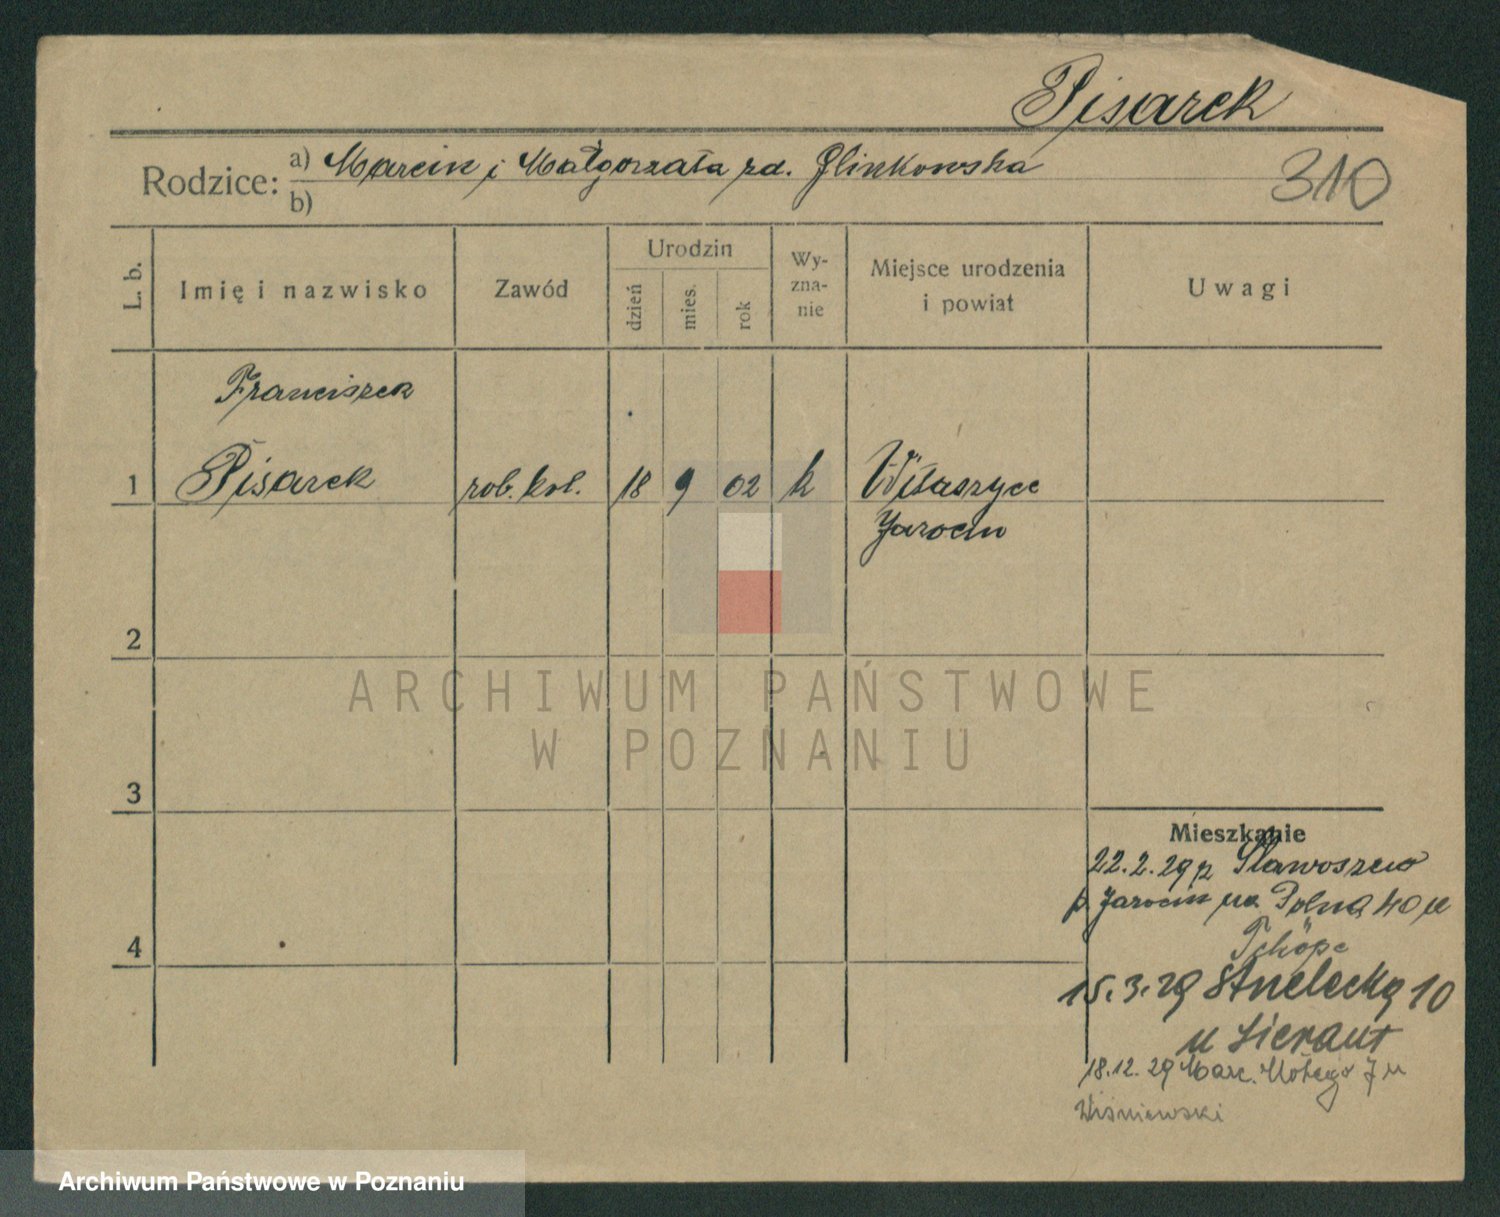 Pisarek
Rodzice: a) Marcin i Małgorzata zd. Glinkowska
b)
310
L. b.
Imię i nazwisko
Zawód
Urodzin
dzień
mies.
rok
Wy-
zna-
nie
Miejsce urodzenia
i powiat
Uwagi
Franciszek
1 Pisarek rob. kol. 18 9 02 k Witaszyce
Jarocin
2
ARCHIWUM PAŃSTWOWE
W POZNANIU
3
4
Mieszkanie
22.2.29 z Sławoszew
p. Jarocin na Polną 40 u
Tchöpe
15.3.29 Strzelecka 10
u Sieraut
18.12.29 Marc. Mottego 7 u
Wiśniewski
Archiwum Państwowe w Poznaniu